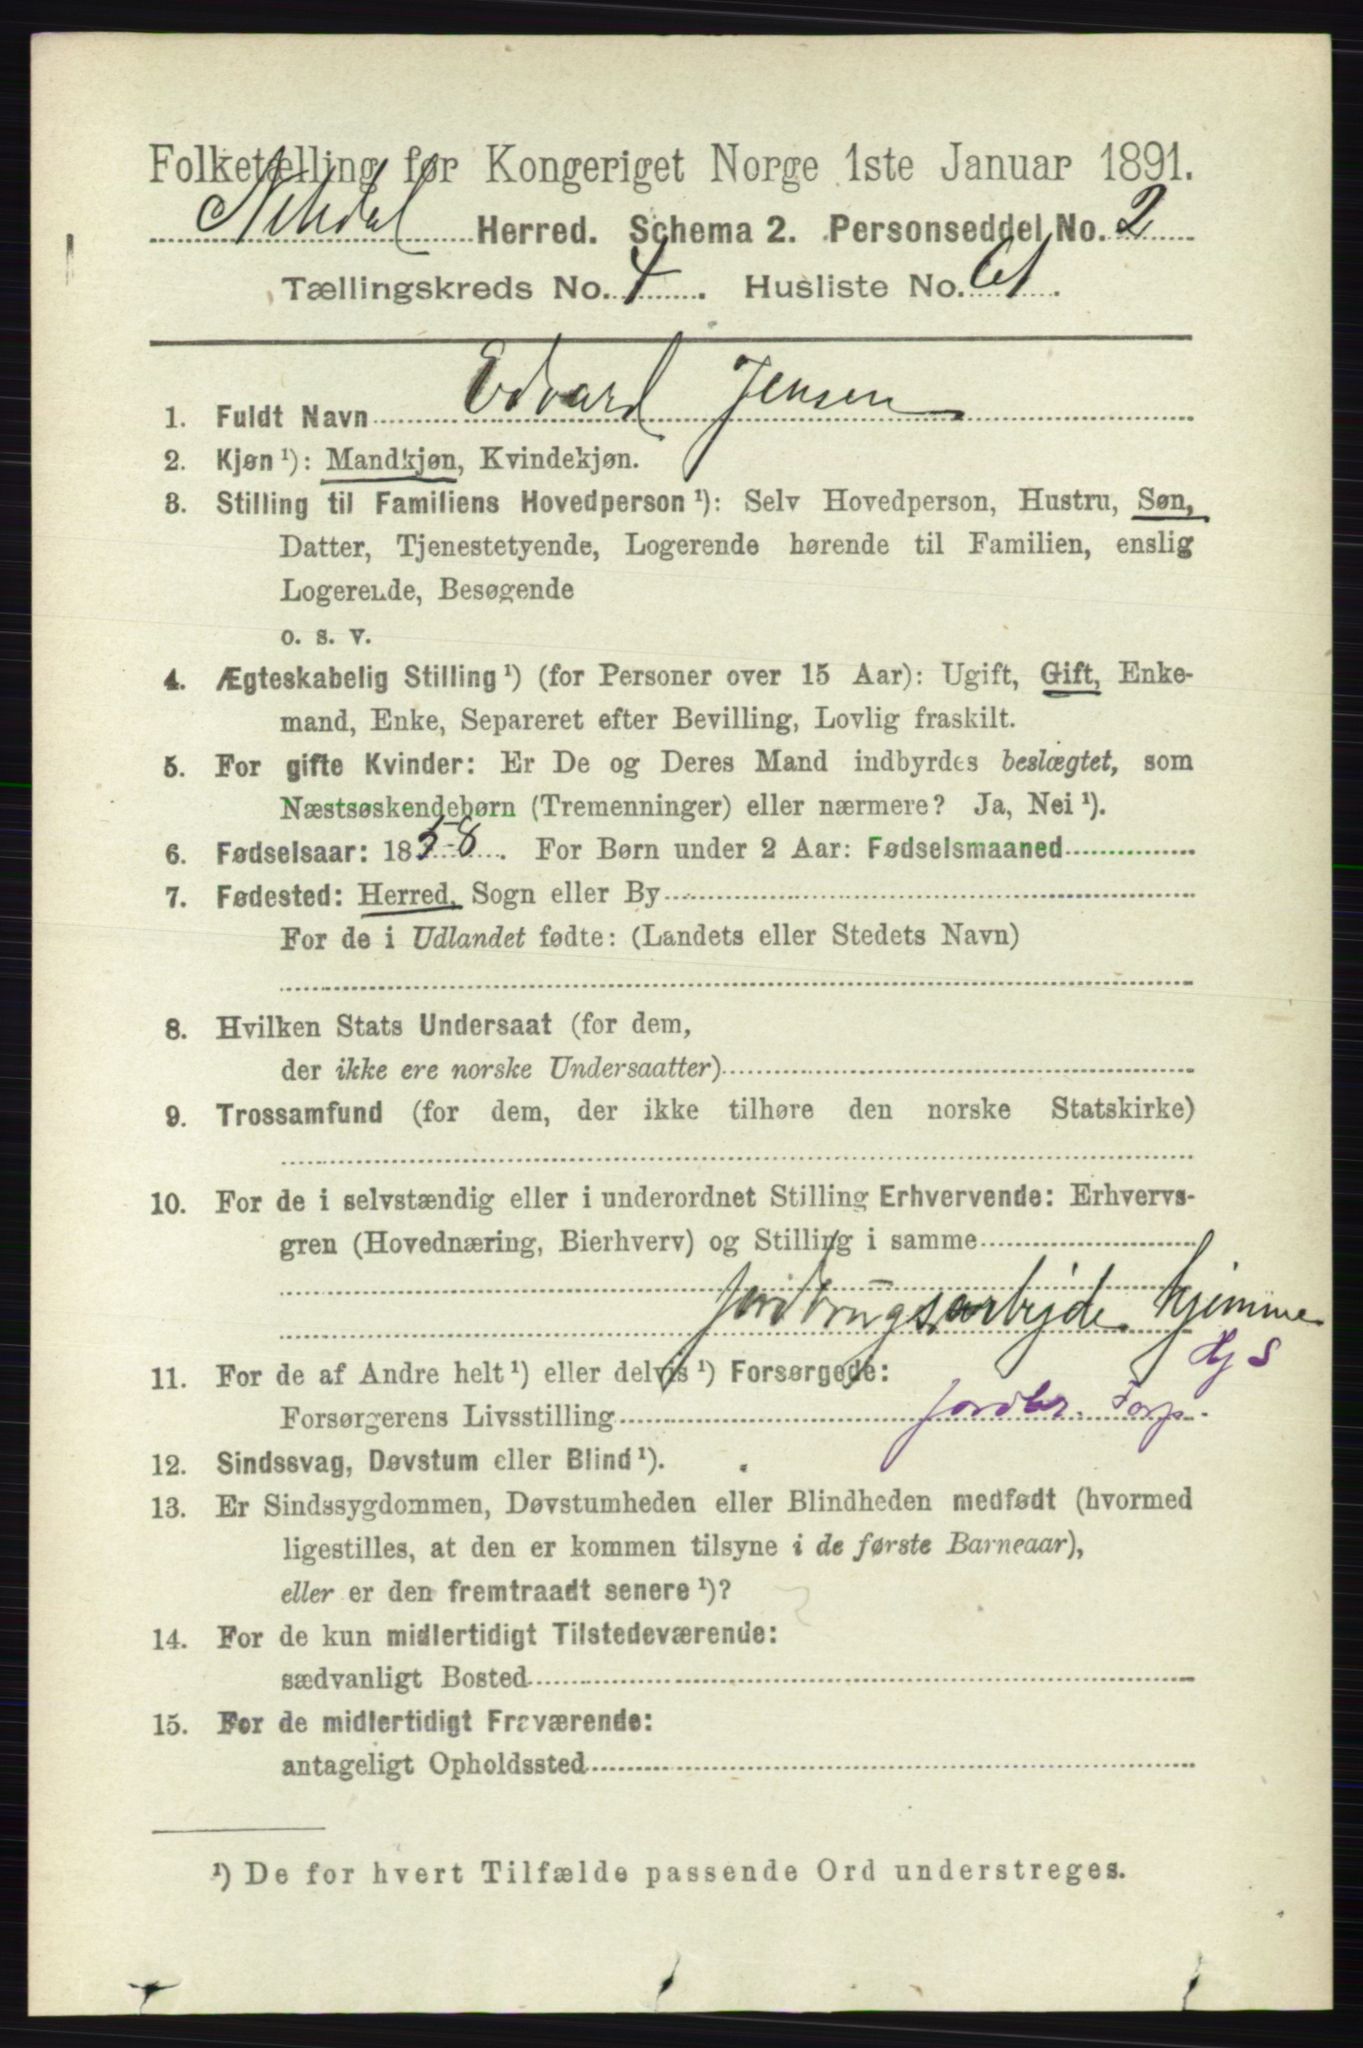 Folketælling for Kongeriget Norge 1ste Januar 1891.
Herred. Schema 2. Personseddel No. 2
Tællingskreds No. 4. Husliste No. 61.
1. Fuldt Navn Edvard Jensen
2. Kjøn ¹): Mandkjøn, Kvindekjøn.
3. Stilling til Familiens Hovedperson ¹): Selv Hovedperson, Hustru, Søn,
Datter, Tjenestetyende, Logerende hørende til Familien, enslig
Logerende, Besøgende
o. s. v.
4. Ægteskabelig Stilling ¹) (for Personer over 15 Aar): Ugift, Gift, Enke-
mand, Enke, Separeret efter Bevilling, Lovlig fraskilt.
5. For gifte Kvinder: Er De og Deres Mand indbyrdes beslægtet, som
Næstsøskendebørn (Tremenninger) eller nærmere? Ja, Nei ¹).
6. Fødselsaar: 1858. For Børn under 2 Aar: Fødselsmaaned
7. Fødested: Herred, Sogn eller By
For de i Udlandet fødte: (Landets eller Stedets Navn)
8. Hvilken Stats Undersaat (for dem,
der ikke ere norske Undersaatter)
9. Trossamfund (for dem, der ikke tilhøre den norske Statskirke)
10. For de i selvstændig eller i underordnet Stilling Erhvervende: Erhvervs-
gren (Hovednæring, Bierhverv) og Stilling i samme
Jordbrugsarbejde hjemme
Hj S
11. For de af Andre helt ¹) eller delvis ¹) Forsørgede:
Forsørgerens Livsstilling Jordbr. Forp.
12. Sindssvag, Døvstum eller Blind ¹).
13. Er Sindssygdommen, Døvstumheden eller Blindheden medfødt (hvormed
ligestilles, at den er kommen tilsyne i de første Barneaar),
eller er den fremtraadt senere ¹)?
14. For de kun midlertidigt Tilstedeværende:
sædvanligt Bosted
15. For de midlertidigt Fraværende:
antageligt Opholdssted
¹) De for hvert Tilfælde passende Ord understreges.